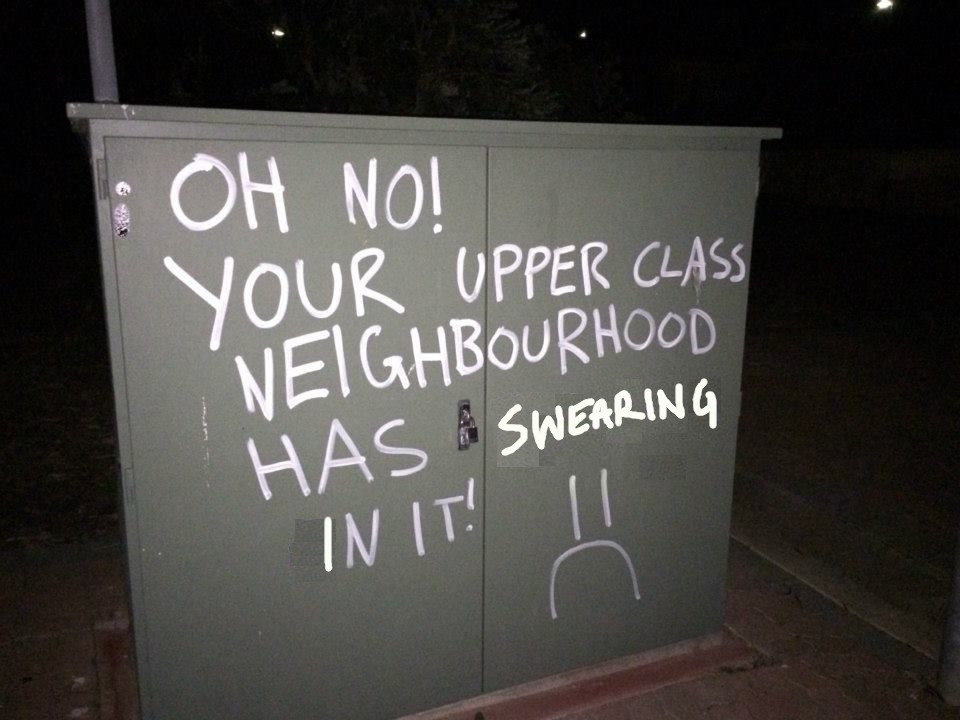 OH NO!
YOUR UPPER CLASS
NEIGHBOURHOOD
HAS SWEARING
IN IT!